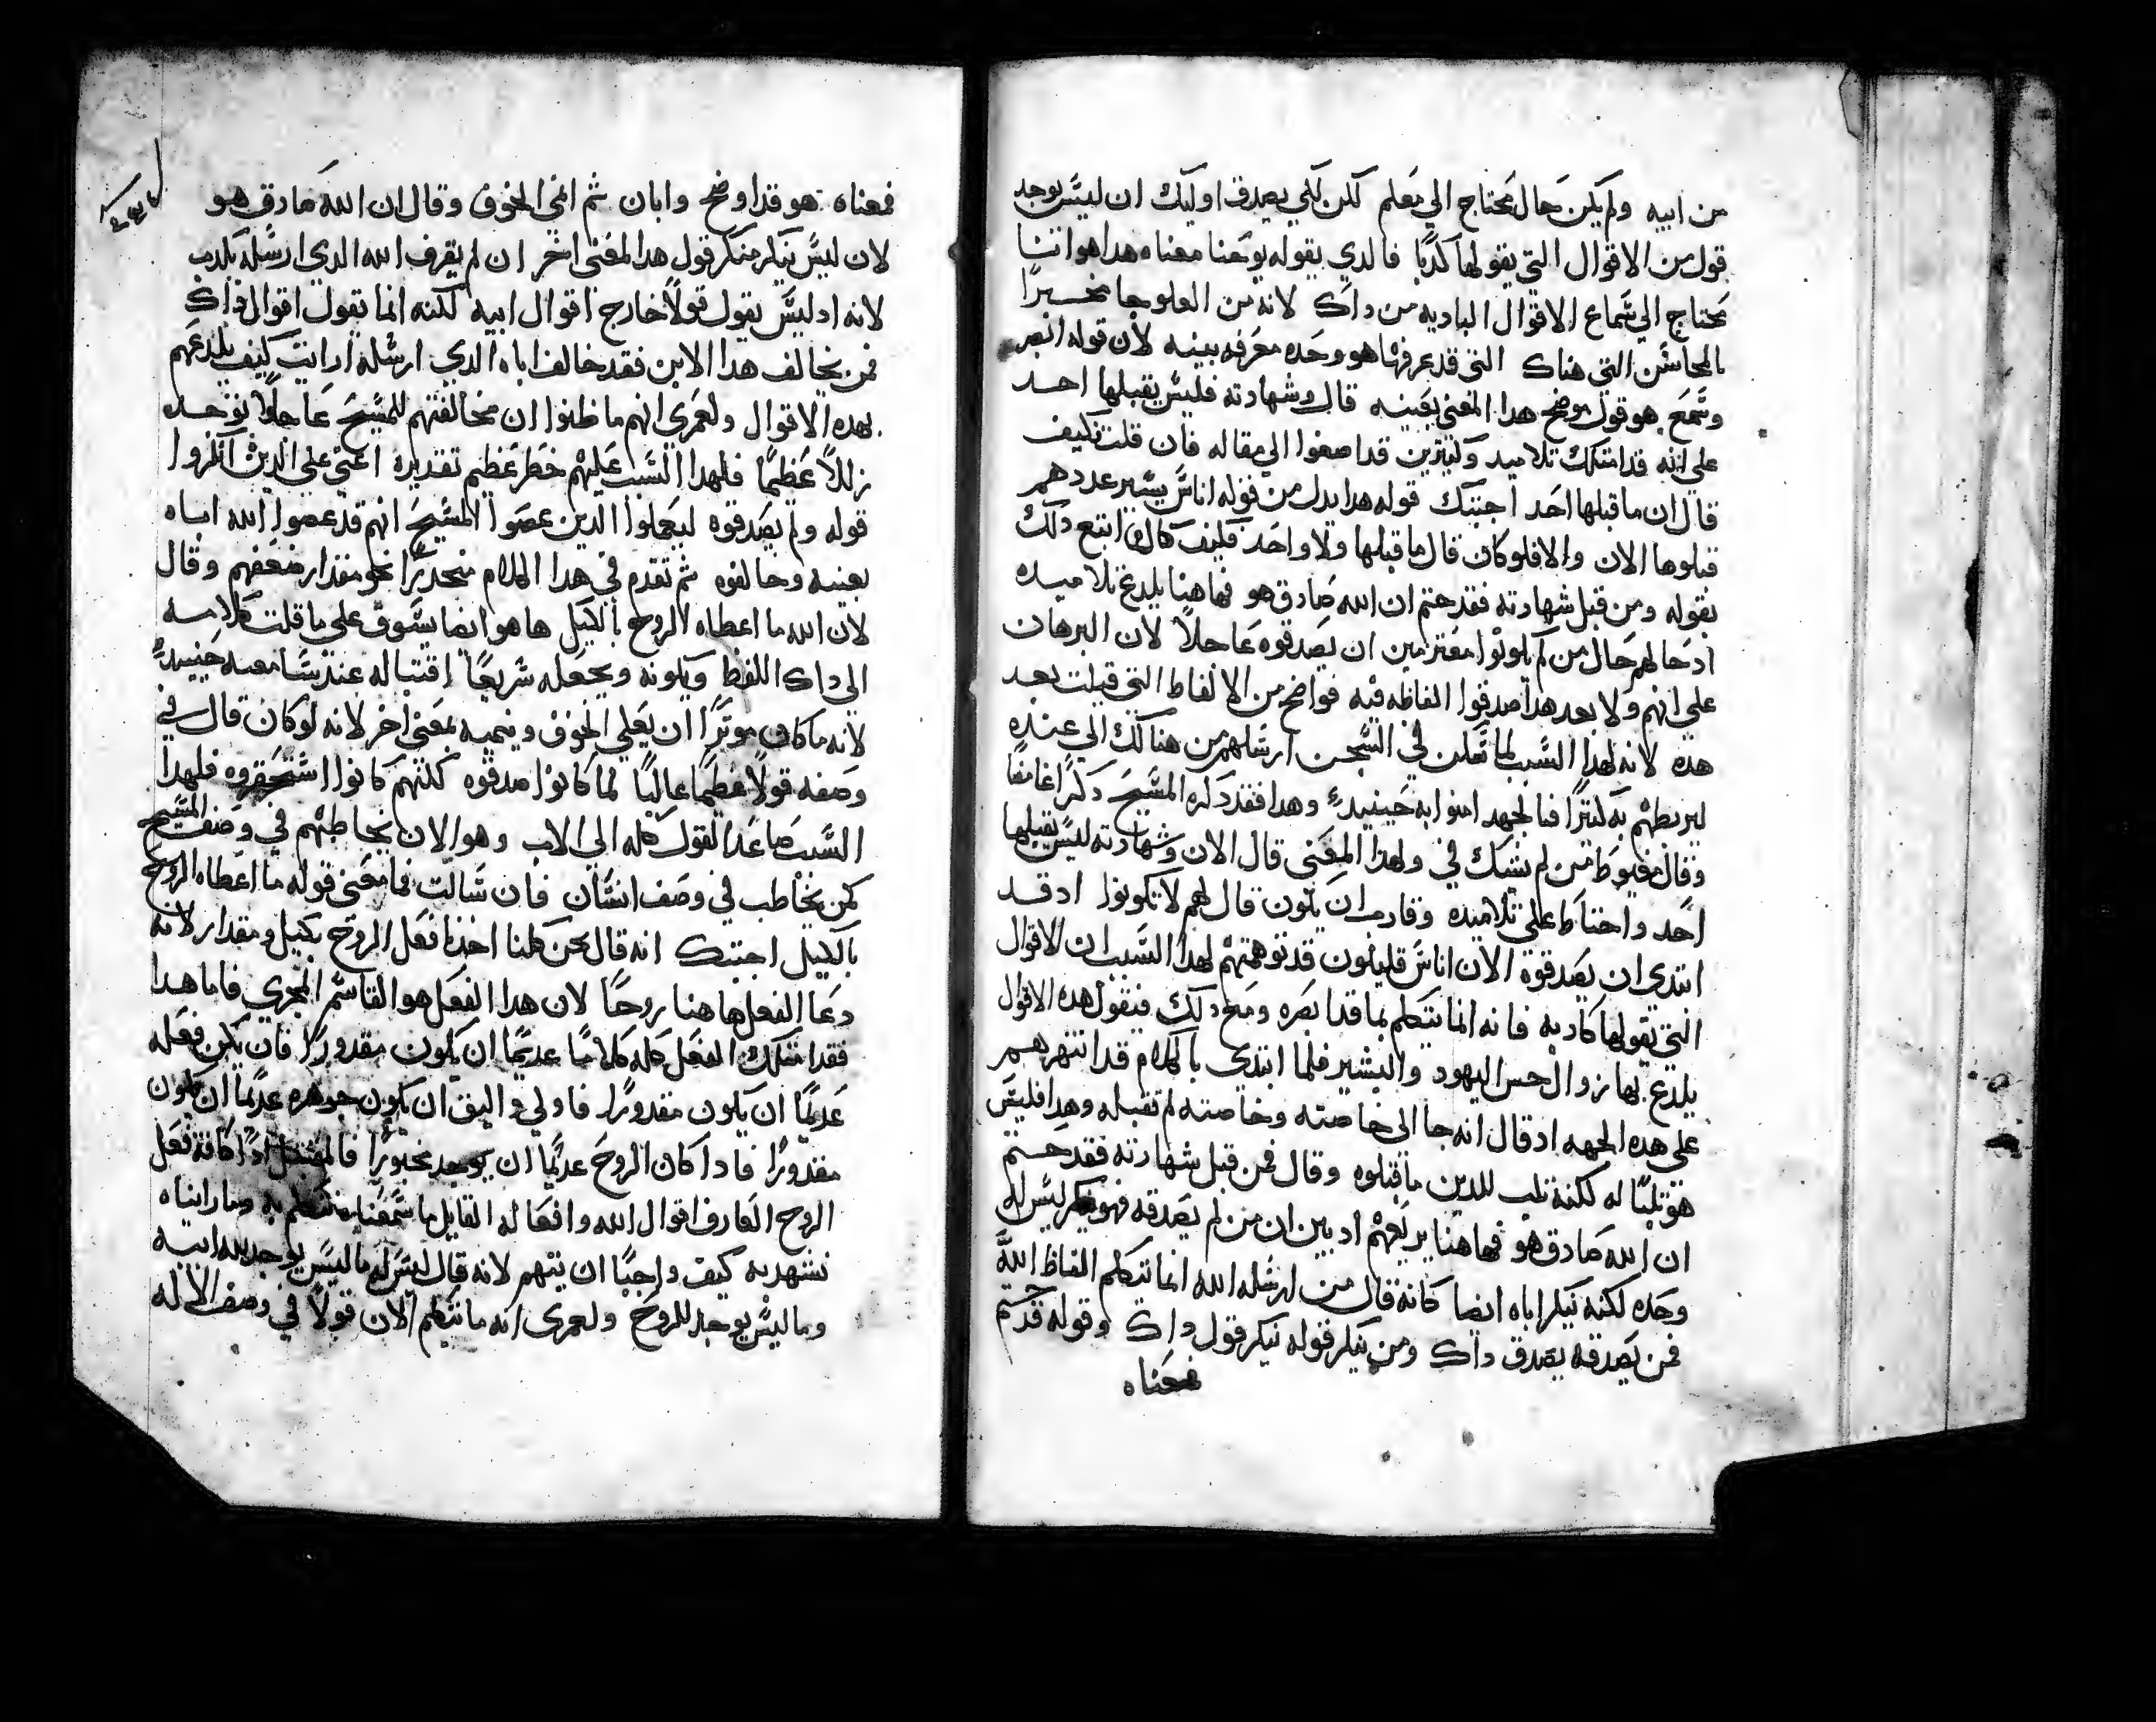 من ابيه ولم يكن حال محتاج الي معلم لكن لكي يصدق اوليك ان ليس يوجد
قول من الاقوال التي يقولها كدبًا فالدي يقوله يوحنا معناه هدا هو اننا
نحتاج الي سماع الاقوال الباديه من داك لانه من العلو جا مخبرًا
بالمحاسن التي هناك التي قد عرفها هو وحده معرفه بينه لان قوله ابصر
وسمع هو قول موضح هدا المعنى بعينه قال وشهادته فليس يقبلها احد
على انه قد امتلك تلاميد وكثيرين قد اصغوا الي مقاله فان قلت فكيف
قال ان ما قبلها احد اجبتك قوله هدا بدل من قوله اناس يسير عددهم
قبلوها الان والا فلو كان قال ما قبلها ولا واحد فكيف كان اتبع دلك
بقوله ومن قبل شهادته فقد ختم ان الله صادق هو فهاهنا يلدع تلاميده
اد حالهم حال من لم يكونوا مقترمين ان يصدقوه عاجلاً لان البرهان
على انهم ولا بعد هدا صدقوا الفاظه فيه فواضح من الالفاظ التي قيلت بعد
هده لانه لهدا السبب لما كان في السجن ارسلهم من هنالك الي عنده
ليربطهم به كثيرًا فبالجهد امنوا به حينيدٍ وهدا فقد دكره المسيح دكرًا غامضًا
وقال مغبوط من لم يشك في ولهدا المعنى قال الان وشهادته ليس يقبلها
احد واحتاط على تلاميده وقارب ان يكون قال لهم لا تكونوا اد قد
ابتدى ان يصدقوه الان اناس قليلون قد توهمتهم لهدا السبب ان الاقوال
التي يقولها كادبه فانه انما يتكلم بما قد ابصره ومع دلك فنقول هده الاقوال
يلدع بها زوال حس اليهود والبشير فلما ابتدى بالكلام قد انتهرهم
على هده الجهه اد قال انه جا الى خاصته وخاصته لم تقبله وهدا فليس
هو ثلبًا له لكنه ثلب للدين ما قبلوه وقال فمن قبل شهادته فقد ختم
ان الله صادق هو فهاهنا يريعهم اد بين ان من لم يصدقه فهو ينكر ليس له
وحده لكنه ينكر اباه ايضا كانه قال من ارسله الله انما يتكلم الفاظ الله
فمن يصدقه يصدق داك ومن ينكر قوله ينكر قول داك وقوله قد ختم
فمعناه
فمعناه هو قد اوضح وابان ثم انمي الخوف وقال ان الله صادق هو
لان ليس ينكر منكر قول هدا المعنى اخر ان لم يقرف الله الدي ارسله بكدب
لانه اد ليس يقول قولاً خارج اقوال ابيه لكنه انما يقول اقوال داك
فمن يخالف هدا الابن فقد خالف اباه الدي ارسله ارايت كيف يلدعهم
بهده الاقوال ولعمري انهم ما ظنوا ان مخالفتهم للمسيح عاجلاً توجد
زللاً عظيمًا فلهدا السبب عليهم خطر عظيم تقديره اعني على الدين انكروا
قوله ولم يصدقوه ليعلموا الدين عصوا المسيح انهم قد عصوا الله اباه
بعينه وخالفوه ثم تقدم في هدا الكلام منحدرًا نحو مقدار ضعفهم وقال
لان الله ما اعطاه الروح بالكيل ها هو ايضا يسوق على ما قلت كلامه
الى داك اللفظ ويلونه ويجعله سريعًا اقتباله عند سامعيه حينيدٍ
لانه ما كان موثرًا ان يعلي الخوف وينميه بمعنى اخر لانه لو كان قال في
وصفه قولاً عظيمًا عاليًا لما كانوا صدقوه لكنهم كانوا استحقروه فلهدا
السبب صاعد القول كله الى الاب وهو الان يخاطبهم في وصف المسيح
كمن يخاطب في وصف انسان فان سالت فما معنى قوله ما اعطاه الروح
بالكيل اجبتك انه قال نحن كلنا اخدنا فعل الروح بكيل ومقدار لانه
دعا الفعل هاهنا روحًا لان هدا الفعل هو القاسم المجزي فاما هدا
فقد امتلك الفعل كله كاملاً عديمًا ان يكون مقدورًا فان يكن فعله
عديمًا ان يكون مقدورًا فاولي واليق ان يكون جوهره عديمًا ان يكون
مقدورًا فادا كان الروح عديمًا ان يوجد مخبورًا فالمقتبل ادًا كافة فعل
الروح العارف اقوال الله وافعاله القايل ما سمعنا نتكلم به وما راينا
نشهد به كيف واجبًا ان يتهم لانه قال ليس له ما ليس يوجد لله ابيه
وما ليس يوجد للروح ولعمري انه ما يتكلم الان قولاً في وصف الاله